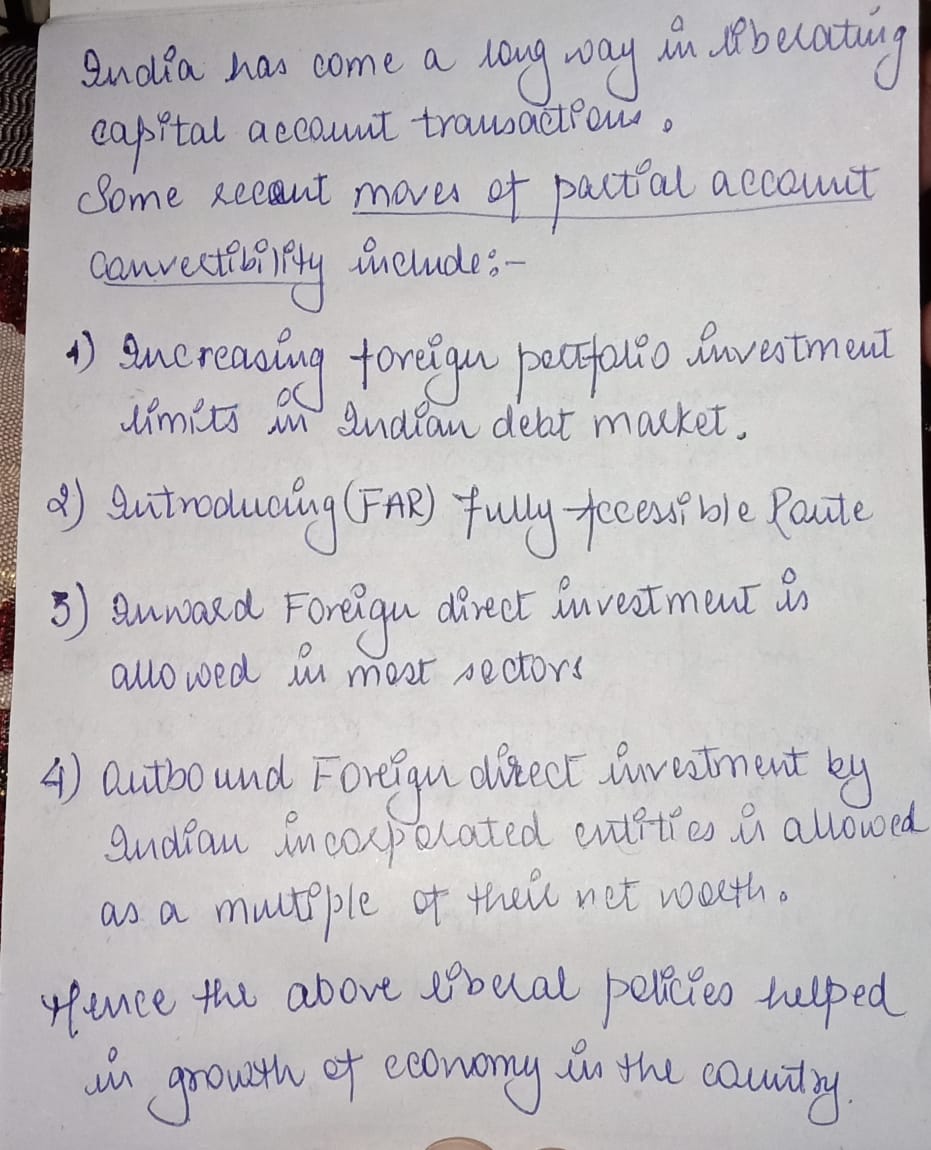 India has come a long way in liberating
capital account transactions.
Some recent moves of partial account
convertibility include:-
1) Increasing foreign portfolio investment
limits in Indian debt market.
2) Introducing (FAR) Fully Accessible Route
3) Inward Foreign direct investment is
allowed in most sectors
4) Outbound Foreign direct investment by
Indian incorporated entities is allowed
as a multiple of their net worth.
Hence the above liberal policies helped
in growth of economy in the country.